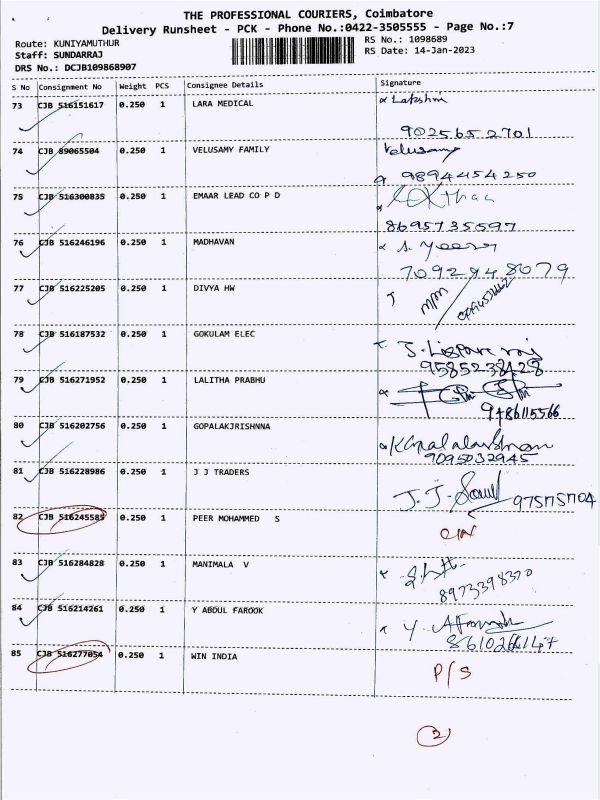 THE PROFESSIONAL COURIERS, Coimbatore
Delivery Runsheet - PCK - Phone No.:0422-3505555 - Page No.:7
Route: KUNIYAMUTHUR
RS No.: 1098689
Staff: SUNDARRAJ
RS Date: 14-Jan-2023
DRS No.: DCJB109868907
S No Consignment No Weight PCS Consignee Details Signature
73 CJB 516151617 0.250 1 LARA MEDICAL Lakshmi
9025652701
74 CJB 89065504 0.250 1 VELUSAMY FAMILY Velusamy
9894454250
75 CJB 516300835 0.250 1 EMAAR LEAD CO P D
8695735597
76 CJB 516246196 0.250 1 MADHAVAN
7092948079
77 CJB 516225205 0.250 1 DIVYA HW
78 CJB 516187532 0.250 1 GOKULAM ELEC
9585238428
79 CJB 516271952 0.250 1 LALITHA PRABHU
9486115566
80 CJB 516202756 0.250 1 GOPALAKJRISHNNA
9095032945
81 CJB 516228986 0.250 1 J J TRADERS
82 CJB 516245585 0.250 1 PEER MOHAMMED S
83 CJB 516284828 0.250 1 MANIMALA V
8973398370
84 CJB 516214261 0.250 1 Y ABDUL FAROOK
85 CJB 516277054 0.250 1 WIN INDIA
P/S
2